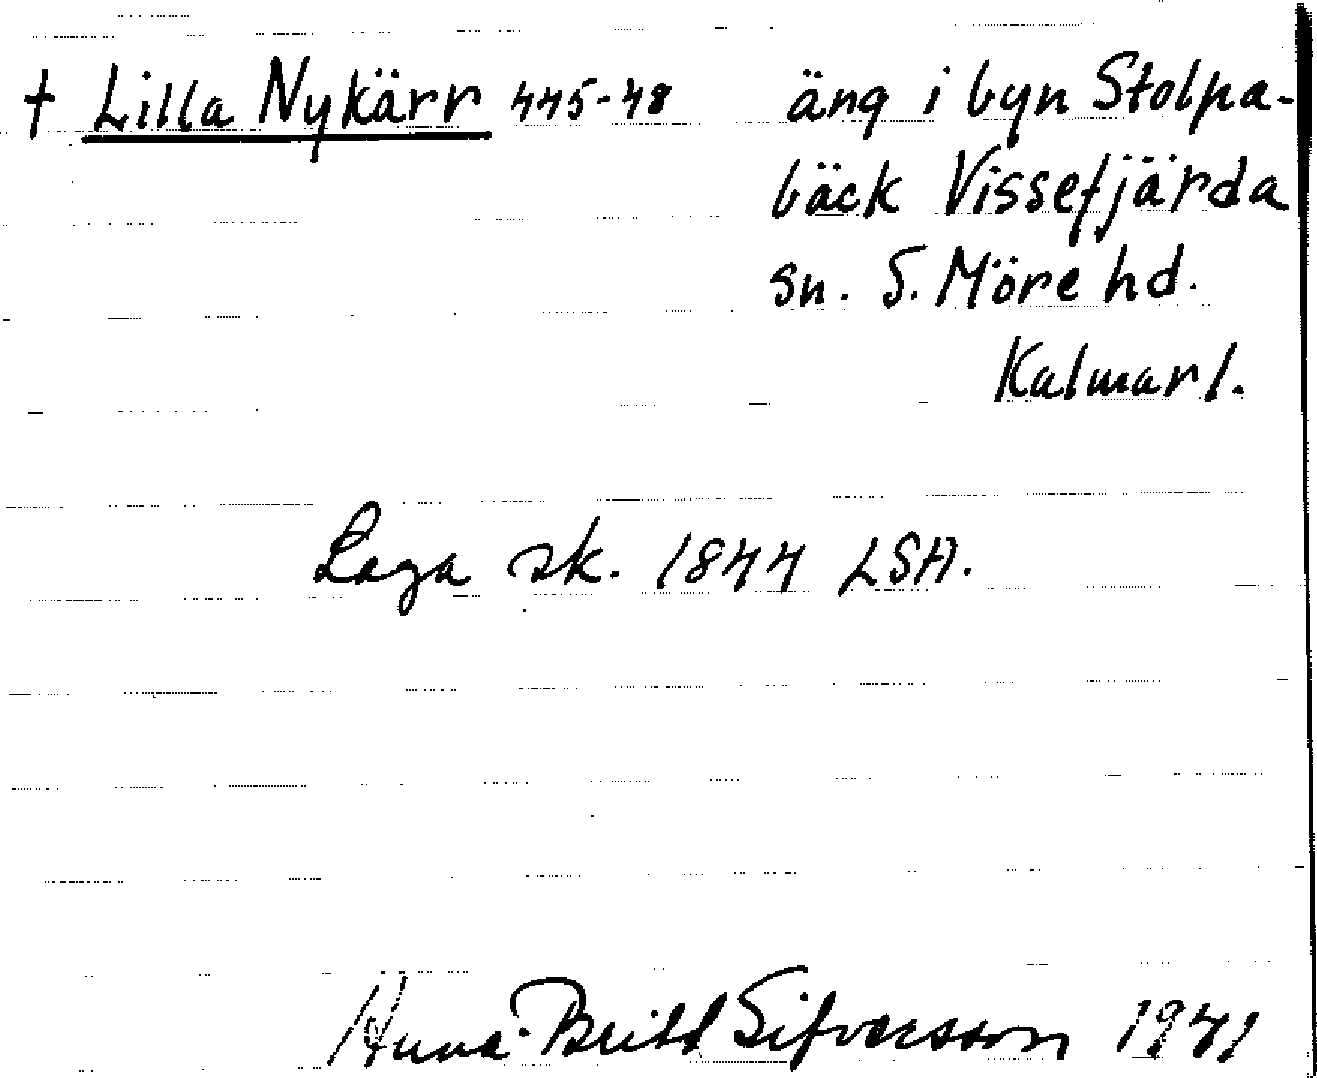 † Lilla Nykärr 445-48 äng i byn Stolpa-
bäck Vissefjärda
sn. S. Möre hd.
Kalmar l.
Laga sk. 1844 LSA.
Anna-Britt Sifvarsson 1941